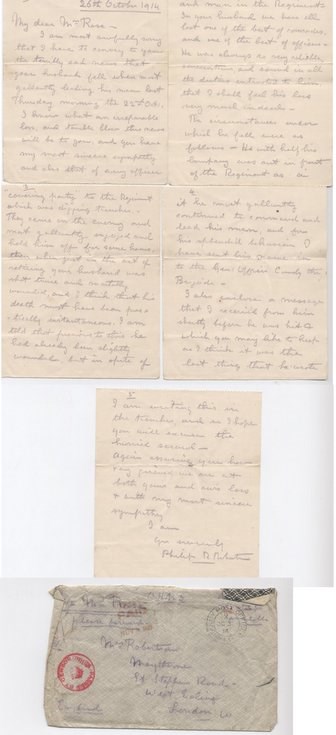 26th October 1914
My dear Mrs Rose -
I am most awfully sorry
that I have to convey to you
the terrible sad news that
your husband fell when most
gallantly leading his men last
Thursday morning the 22nd Oct.
I know what an irreparable
loss and terrible blow this news
will be to you and you have
my most sincere sympathy
and also that of every officer
and man in the Regiment
In your husband we have all
lost one of the best of comrades
and one of the best of officers.
He was always so very
in all
the duties entrusted to him
that I shall feel his loss
very much indeed -
The circumstances under
which he fell were as
follows - He with half his
Company was out in front
of the Regiment as a
covering party to the Regiment
which was digging trenches -
They came on the enemy and
most gallantly engaged and
held them off for some hours
then when just in the act of
retiring your husband was
shot twice and mortally
wounded and I think that his
death must have been prac
-tically instantaneous. I am
told that previous to this he
had already been slightly
wounded but in spite of
it he most gallantly
continued to command and
lead his men, and for
his splendid behaviour I
have sent his name in
to the Genl Officer Comdg the
Brigade -
I also enclose a message
that I received from him
shortly before he was hit
which you may like to keep
as I think it was the
last thing that he wrote
I am writing this in
the trenches, and so I hope
you will excuse the
horrid scrawl -
Again assuring you how
very grieved we are at
both yours and our loss
& with my most sincere
sympathy
I am
Yrs sincerely
Philip R Robertson
Mrs Rose
please forward
Mrs Robertson
St Stephens Road
West Ealing
London W